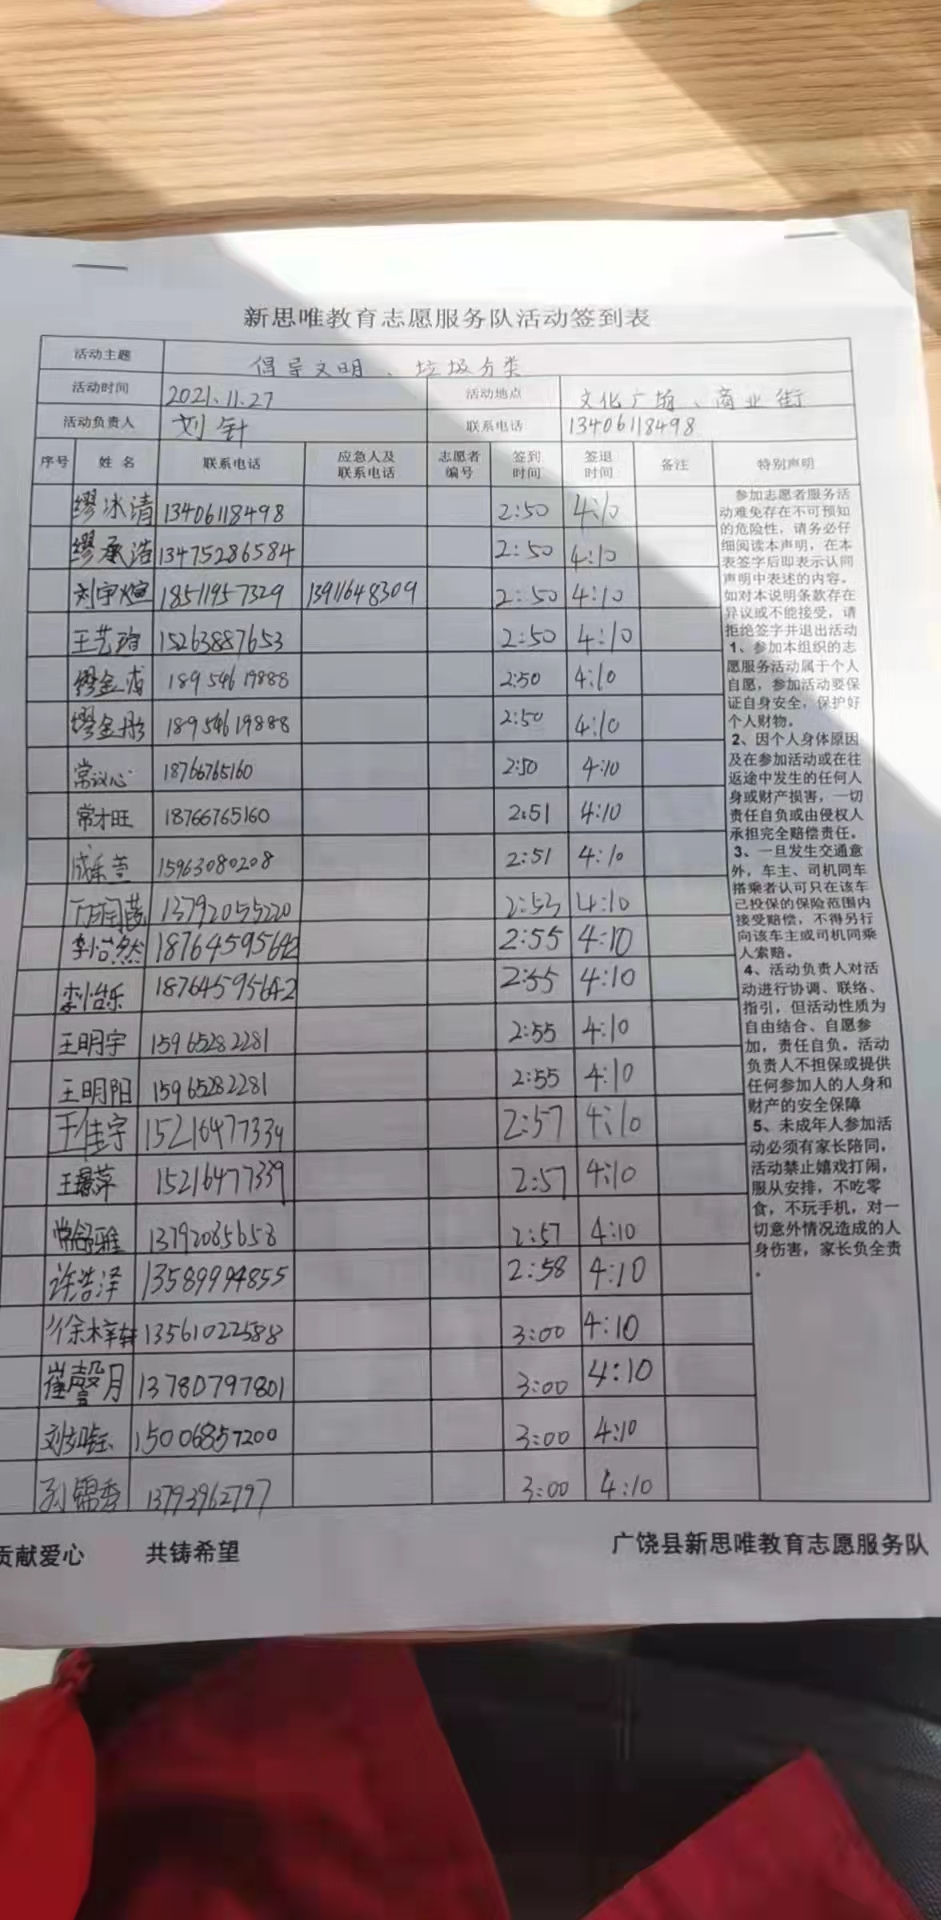 新思唯教育志愿服务队活动签到表
活动主题 倡导文明、垃圾分类
活动时间 2021.11.27 活动地点 文化广场、商业街
活动负责人 刘针 联系电话 13406118498
序号 姓名 联系电话 应急人及联系电话 志愿者编号 签到时间 签退时间 备注 特别声明
缪冰清 13406118498 2:50 4:10
缪承浩 13475286584 2:50 4:10
刘宇煊 18511957329 13911648309 2:50 4:10
王艺瑄 15263887653 2:50 4:10
缪金 18954619888 2:50 4:10
缪金彤 18954619888 2:50 4:10
常议心 18766765160 2:50 4:10
常才旺 18766765160 2:51 4:10
成乐萱 15963080208 2:51 4:10
13792055220 2:53 4:10
李怡然 18764595642 2:55 4:10
李怡乐 18764595642 2:55 4:10
王明宇 15965282281 2:55 4:10
王明阳 15965282281 2:55 4:10
王佳宇 15216477339 2:57 4:10
王 萍 15216477339 2:57 4:10
常舒雅 13792085658 2:57 4:10
许浩泽 13589994855 2:58 4:10
徐梓轩 13561022588 3:00 4:10
崔馨月 13780797801 3:00 4:10
刘 钰 15006857200 3:00 4:10
孙锦秀 13793962797 3:00 4:10
参加志愿者服务活
动难免存在不可预知
的危险性，请务必仔
细阅读本声明，在本
表签字后即表示认同
声明中表述的内容。
如对本说明条款存在
异议或不能接受，请
拒绝签字并退出活动
1、参加本组织的志
愿服务活动属于个人
自愿，参加活动要保
证自身安全，保护好
个人财物。
2、因个人身体原因
及在参加活动或在往
返途中发生的任何人
身或财产损害，一切
责任自负或由侵权人
承担完全赔偿责任。
3、一旦发生交通意
外，车主、司机同车
搭乘者认可只在该车
已投保的保险范围内
接受赔偿，不得另行
向该车主或司机同乘
人索赔。
4、活动负责人对活
动进行协调、联络、
指引，但活动性质为
自由结合、自愿参
加，责任自负。活动
负责人不担保或提供
任何参加人的人身和
财产的安全保障
5、未成年人参加活
动必须有家长陪同，
活动禁止嬉戏打闹，
服从安排，不吃零
食，不玩手机，对一
切意外情况造成的人
身伤害，家长负全责
。
贡献爱心 共铸希望 广饶县新思唯教育志愿服务队